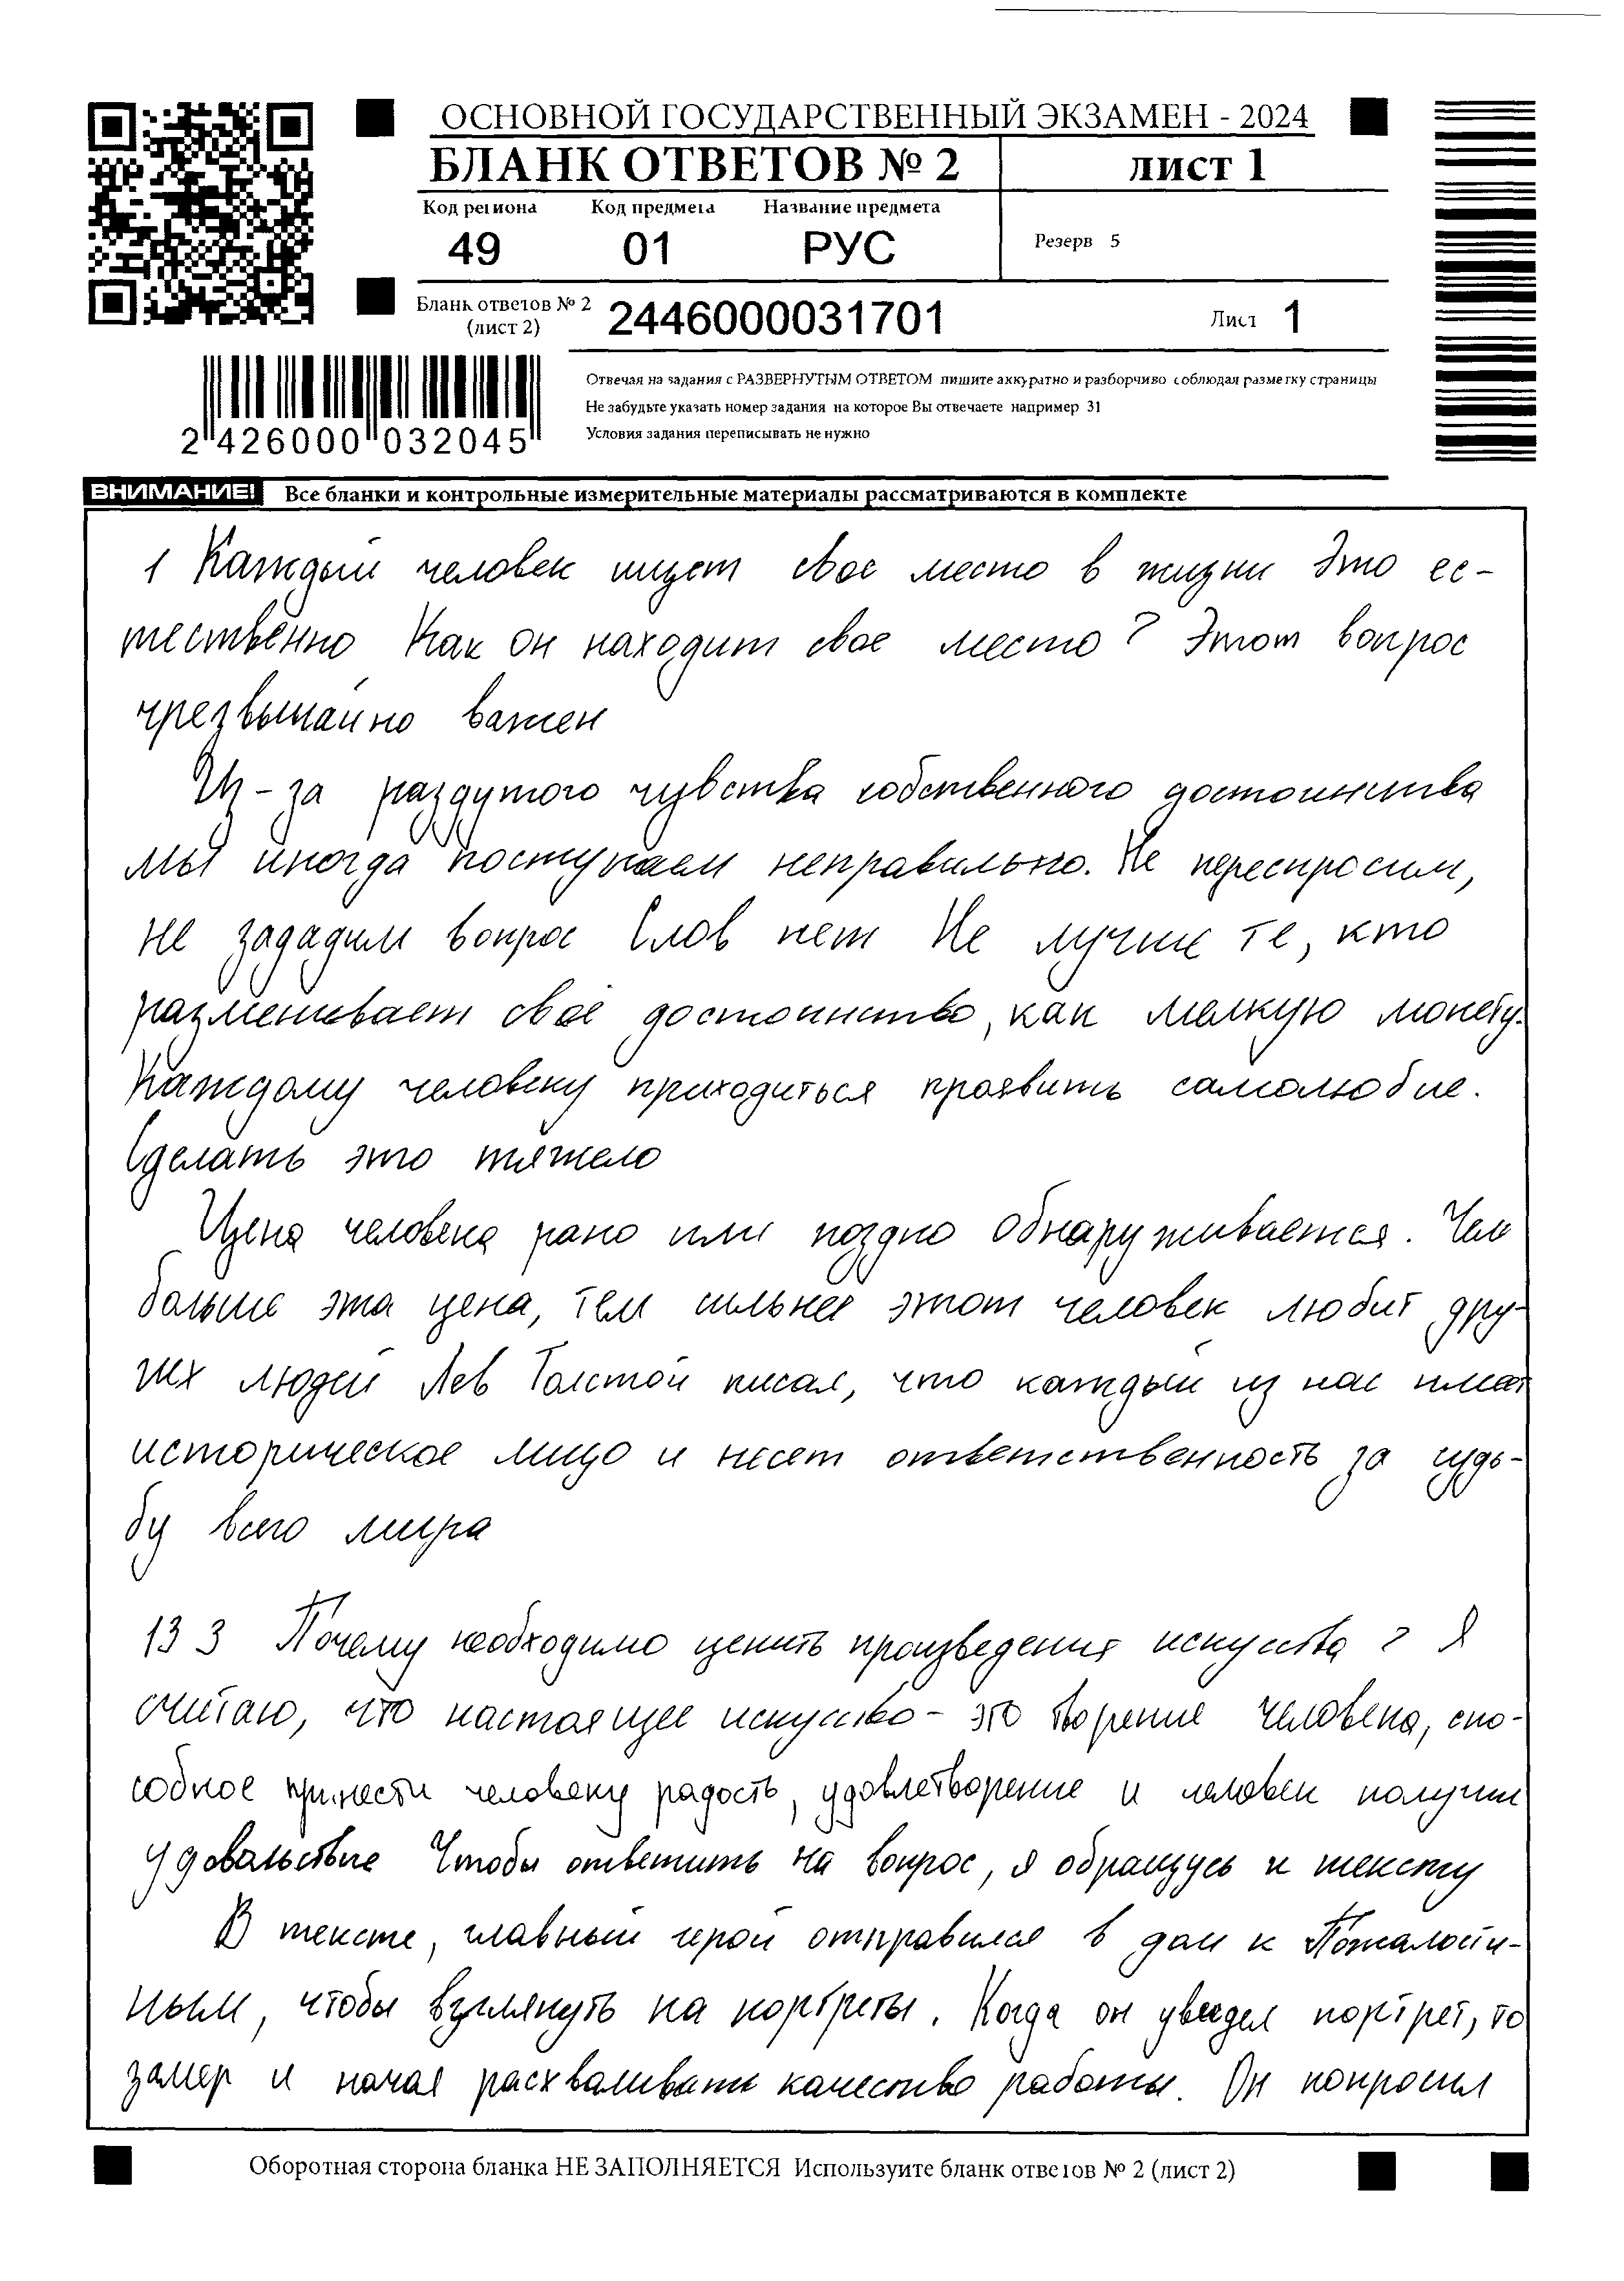 ОСНОВНОЙ ГОСУДАРСТВЕННЫЙ ЭКЗАМЕН - 2024
БЛАНК ОТВЕТОВ № 2
лист 1
Код региона Код предмета Название предмета
49 01 РУС
Резерв 5
Бланк ответов № 2
(лист 2)
2446000031701
Лист 1
2 426000 032045
Отвечая на задания с РАЗВЕРНУТЫМ ОТВЕТОМ пишите аккуратно и разборчиво соблюдая разметку страницы
Не забудьте указать номер задания на которое Вы отвечаете например 31
Условия задания переписывать не нужно
ВНИМАНИЕ! Все бланки и контрольные измерительные материалы рассматриваются в комплекте
1 Каждый человек ищет свое место в жизни Это ес-
тественно Как он находит свое место? Этот вопрос
чрезвычайно важен
Из-за раздутого чувства собственного достоинства
мы иногда поступаем неправильно. Не переспросим,
не зададим вопрос Слов нет Не лучше те, кто
разменивает свое достоинство, как мелкую монету.
Каждому человеку приходиться проявить самолюбие.
Сделать это тяжело
Цена человека рано или поздно обнаруживается. Чем
больше эта цена, тем сильнее этот человек любит дру-
гих людей Лев Толстой писал, что каждый из нас имеет
историческое лицо и несет ответственность за судь-
бу всего мира
13 3 Почему необходимо ценить произведения искусства? Я
считаю, что настоящее искусство - это творение человека, спо-
собное принести человеку радость, удовлетворение и человек получит
удовольствие Чтобы ответить на вопрос, я обращусь к тексту
В тексте, главный герой отправился в дом к Пожалости-
ным, чтобы взглянуть на портреты. Когда он увидел портрет, то
замер и начал расхваливать качество работы. Он попросил
Оборотная сторона бланка НЕ ЗАПОЛНЯЕТСЯ Используите бланк ответов № 2 (лист 2)